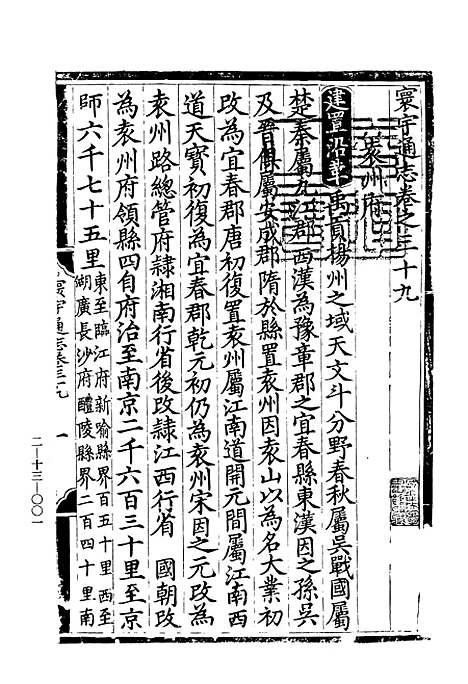 寰宇通志卷之三十九
袁州府
建置沿革 禹貢揚州之域天文斗分野春秋屬吳戰國屬
楚秦屬九江郡西漢為豫章郡之宜春縣東漢因之孫吳
及晉俱屬安成郡隋於縣置袁州因袁山以為名大業初
改為宜春郡唐初復置袁州屬江南道開元間屬江南西
道天寶初復為宜春郡乾元初仍為袁州宋因之元改為
袁州路總管府隸湖南行省後改隸江西行省 國朝改
為袁州府領縣四自府治至南京二千六百三十里至京
師六千七十五里
東至臨江府新喻縣界百五十里西至
湖廣長沙府醴陵縣界二百四十里南
寰宇通志卷三九
一
二—十三—〇〇一